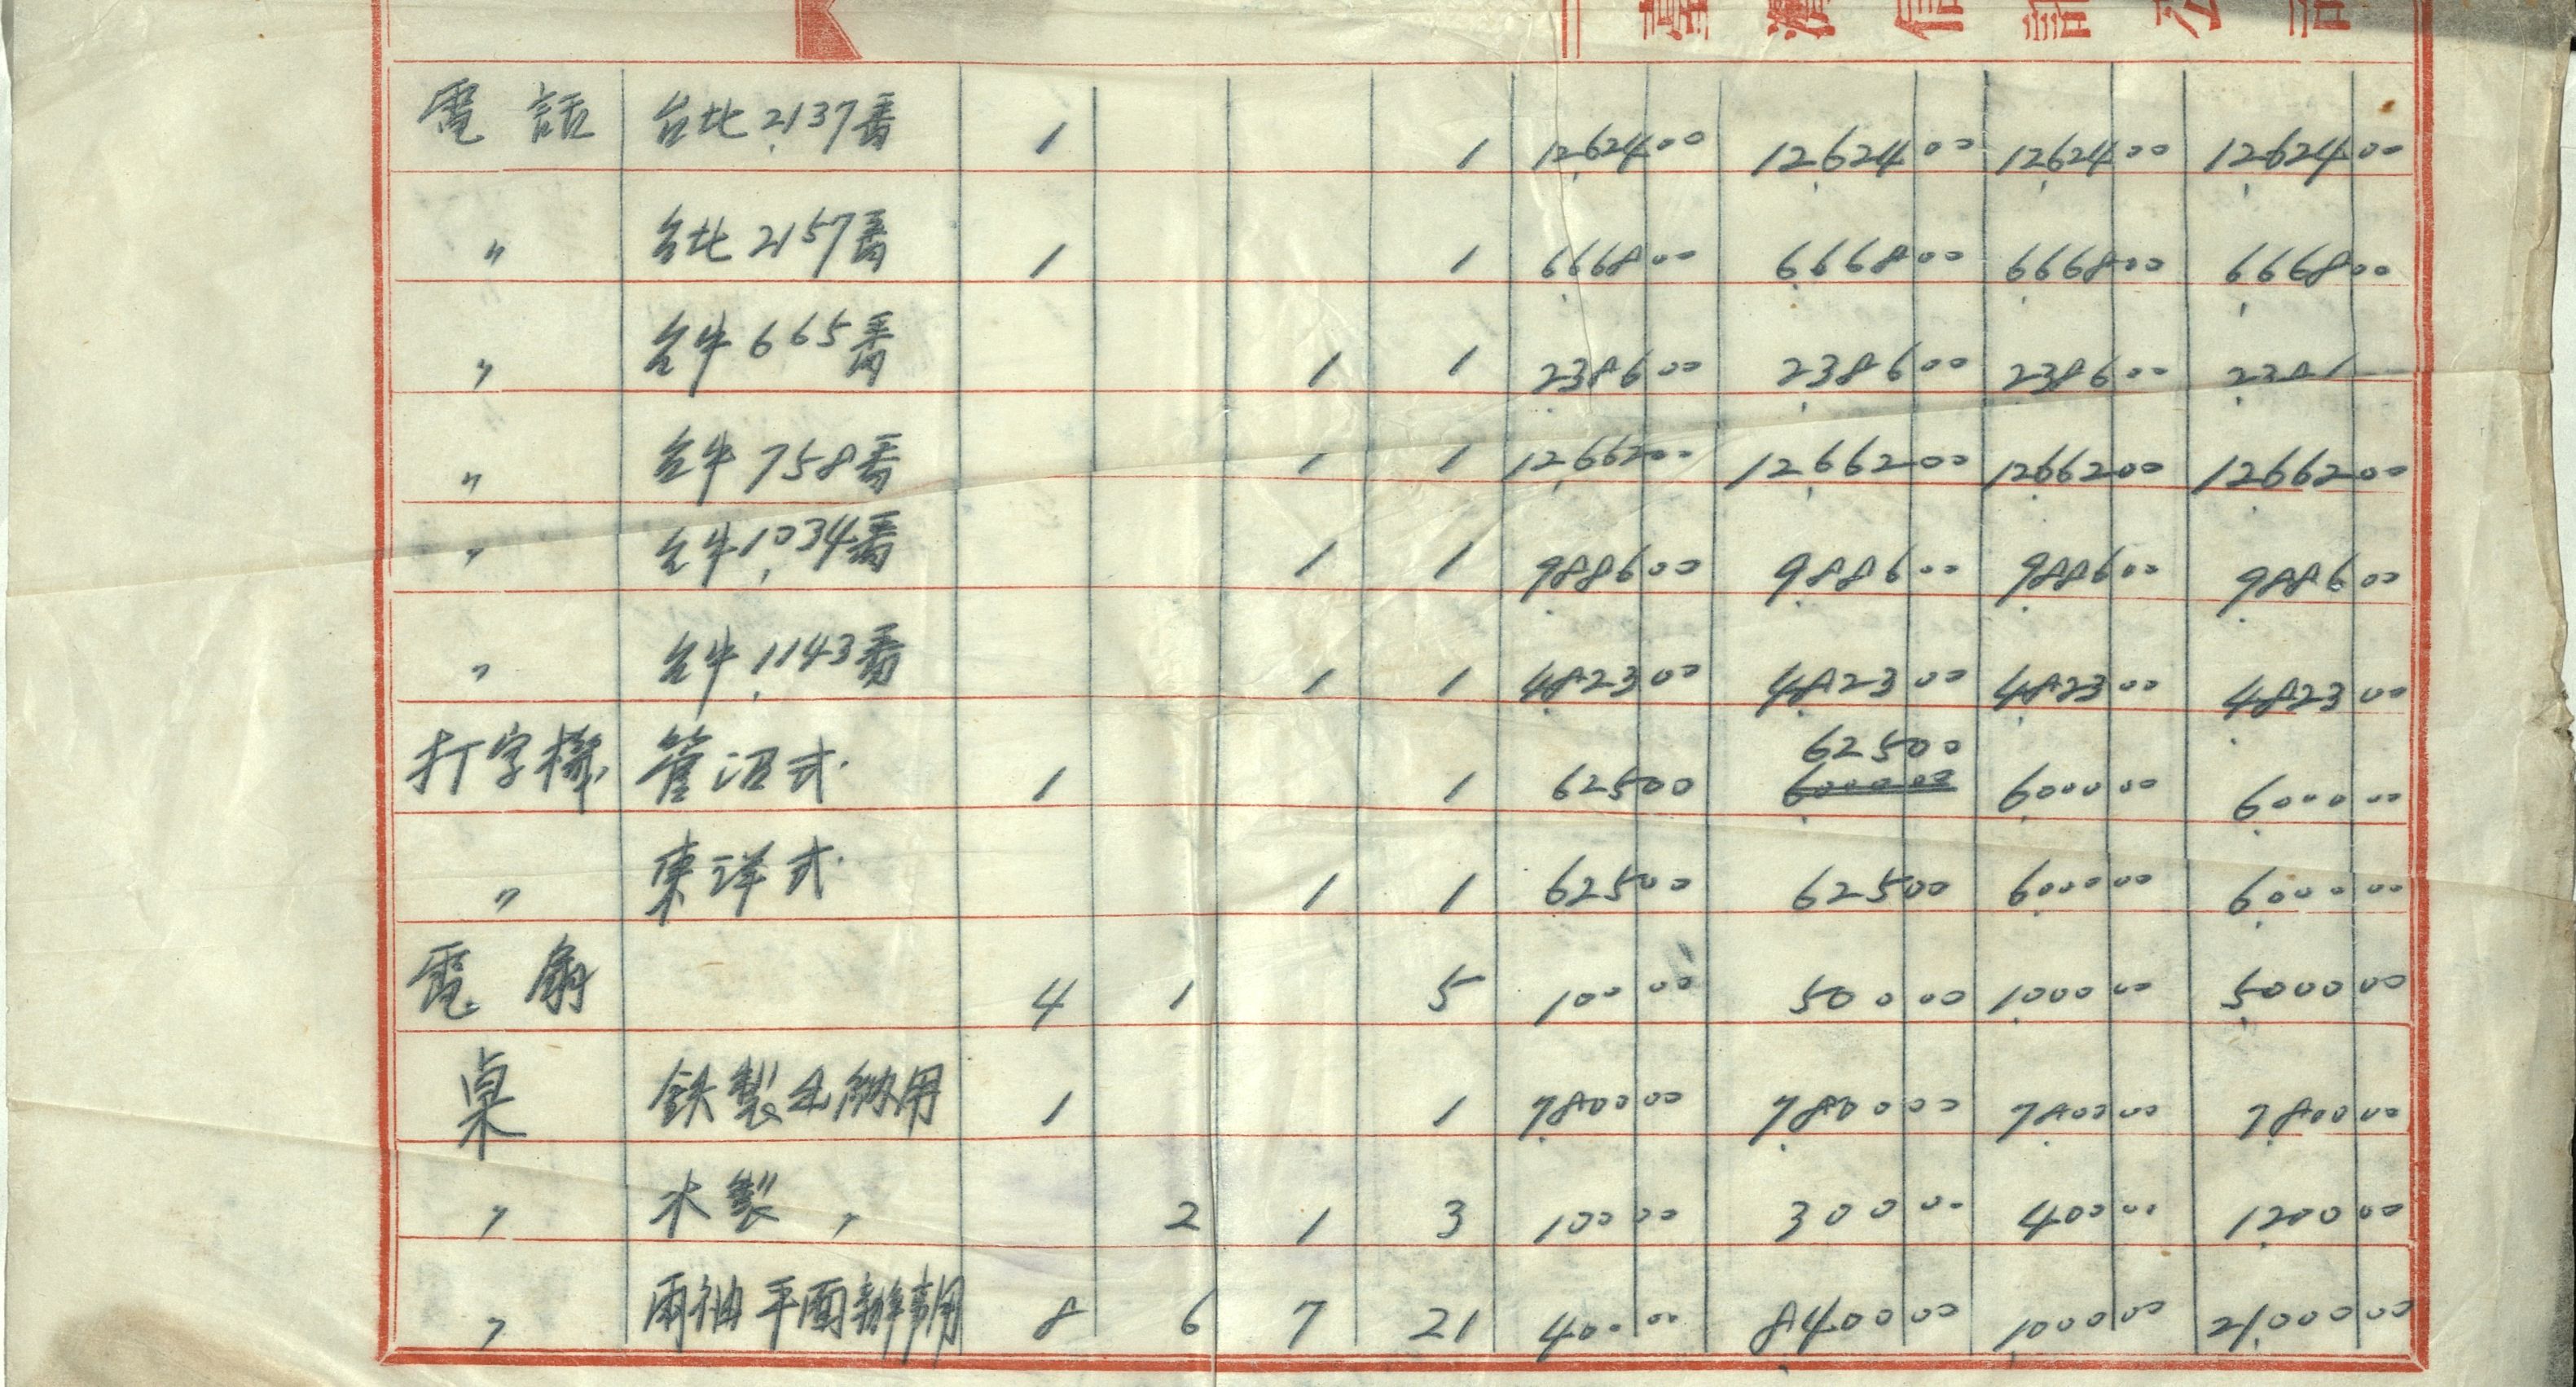 臺灣信託公司
電話 台北2137番 1 1 12,624 00 12,624 00 12,624 00 12,624 00
〃 台北2157番 1 1 6,668 00 6,668 00 6,668 00 6,668 00
〃 台中665番 1 1 2,386 00 2,386 00 2,386 00
〃 台中758番 1 1 12,662 00 12,662 00 12,662 00 12,662 00
〃 台中1,034番 1 1 9,886 00 9,886 00 9,886 00 9,886 00
〃 台中1,143番 1 1 4,823 00 4,823 00 4,823 00 4,823 00
625 00
打字機 管沼式 1 1 625 00 6,000 00 6,000 00 6,000 00
〃 東洋式 1 1 625 00 625 00 6,000 00 6,000 00
電扇 4 1 5 100 00 500 00 1,000 00 5,000 00
桌 鉄製出納用 1 1 7,800 00 7,800 00 7,800 00 7,800 00
〃 木製 〃 2 1 3 100 00 300 00 400 00 1,200 00
〃 両袖平面辦事用 8 6 7 21 400 00 8,400 00 1,000 00 21,000 00